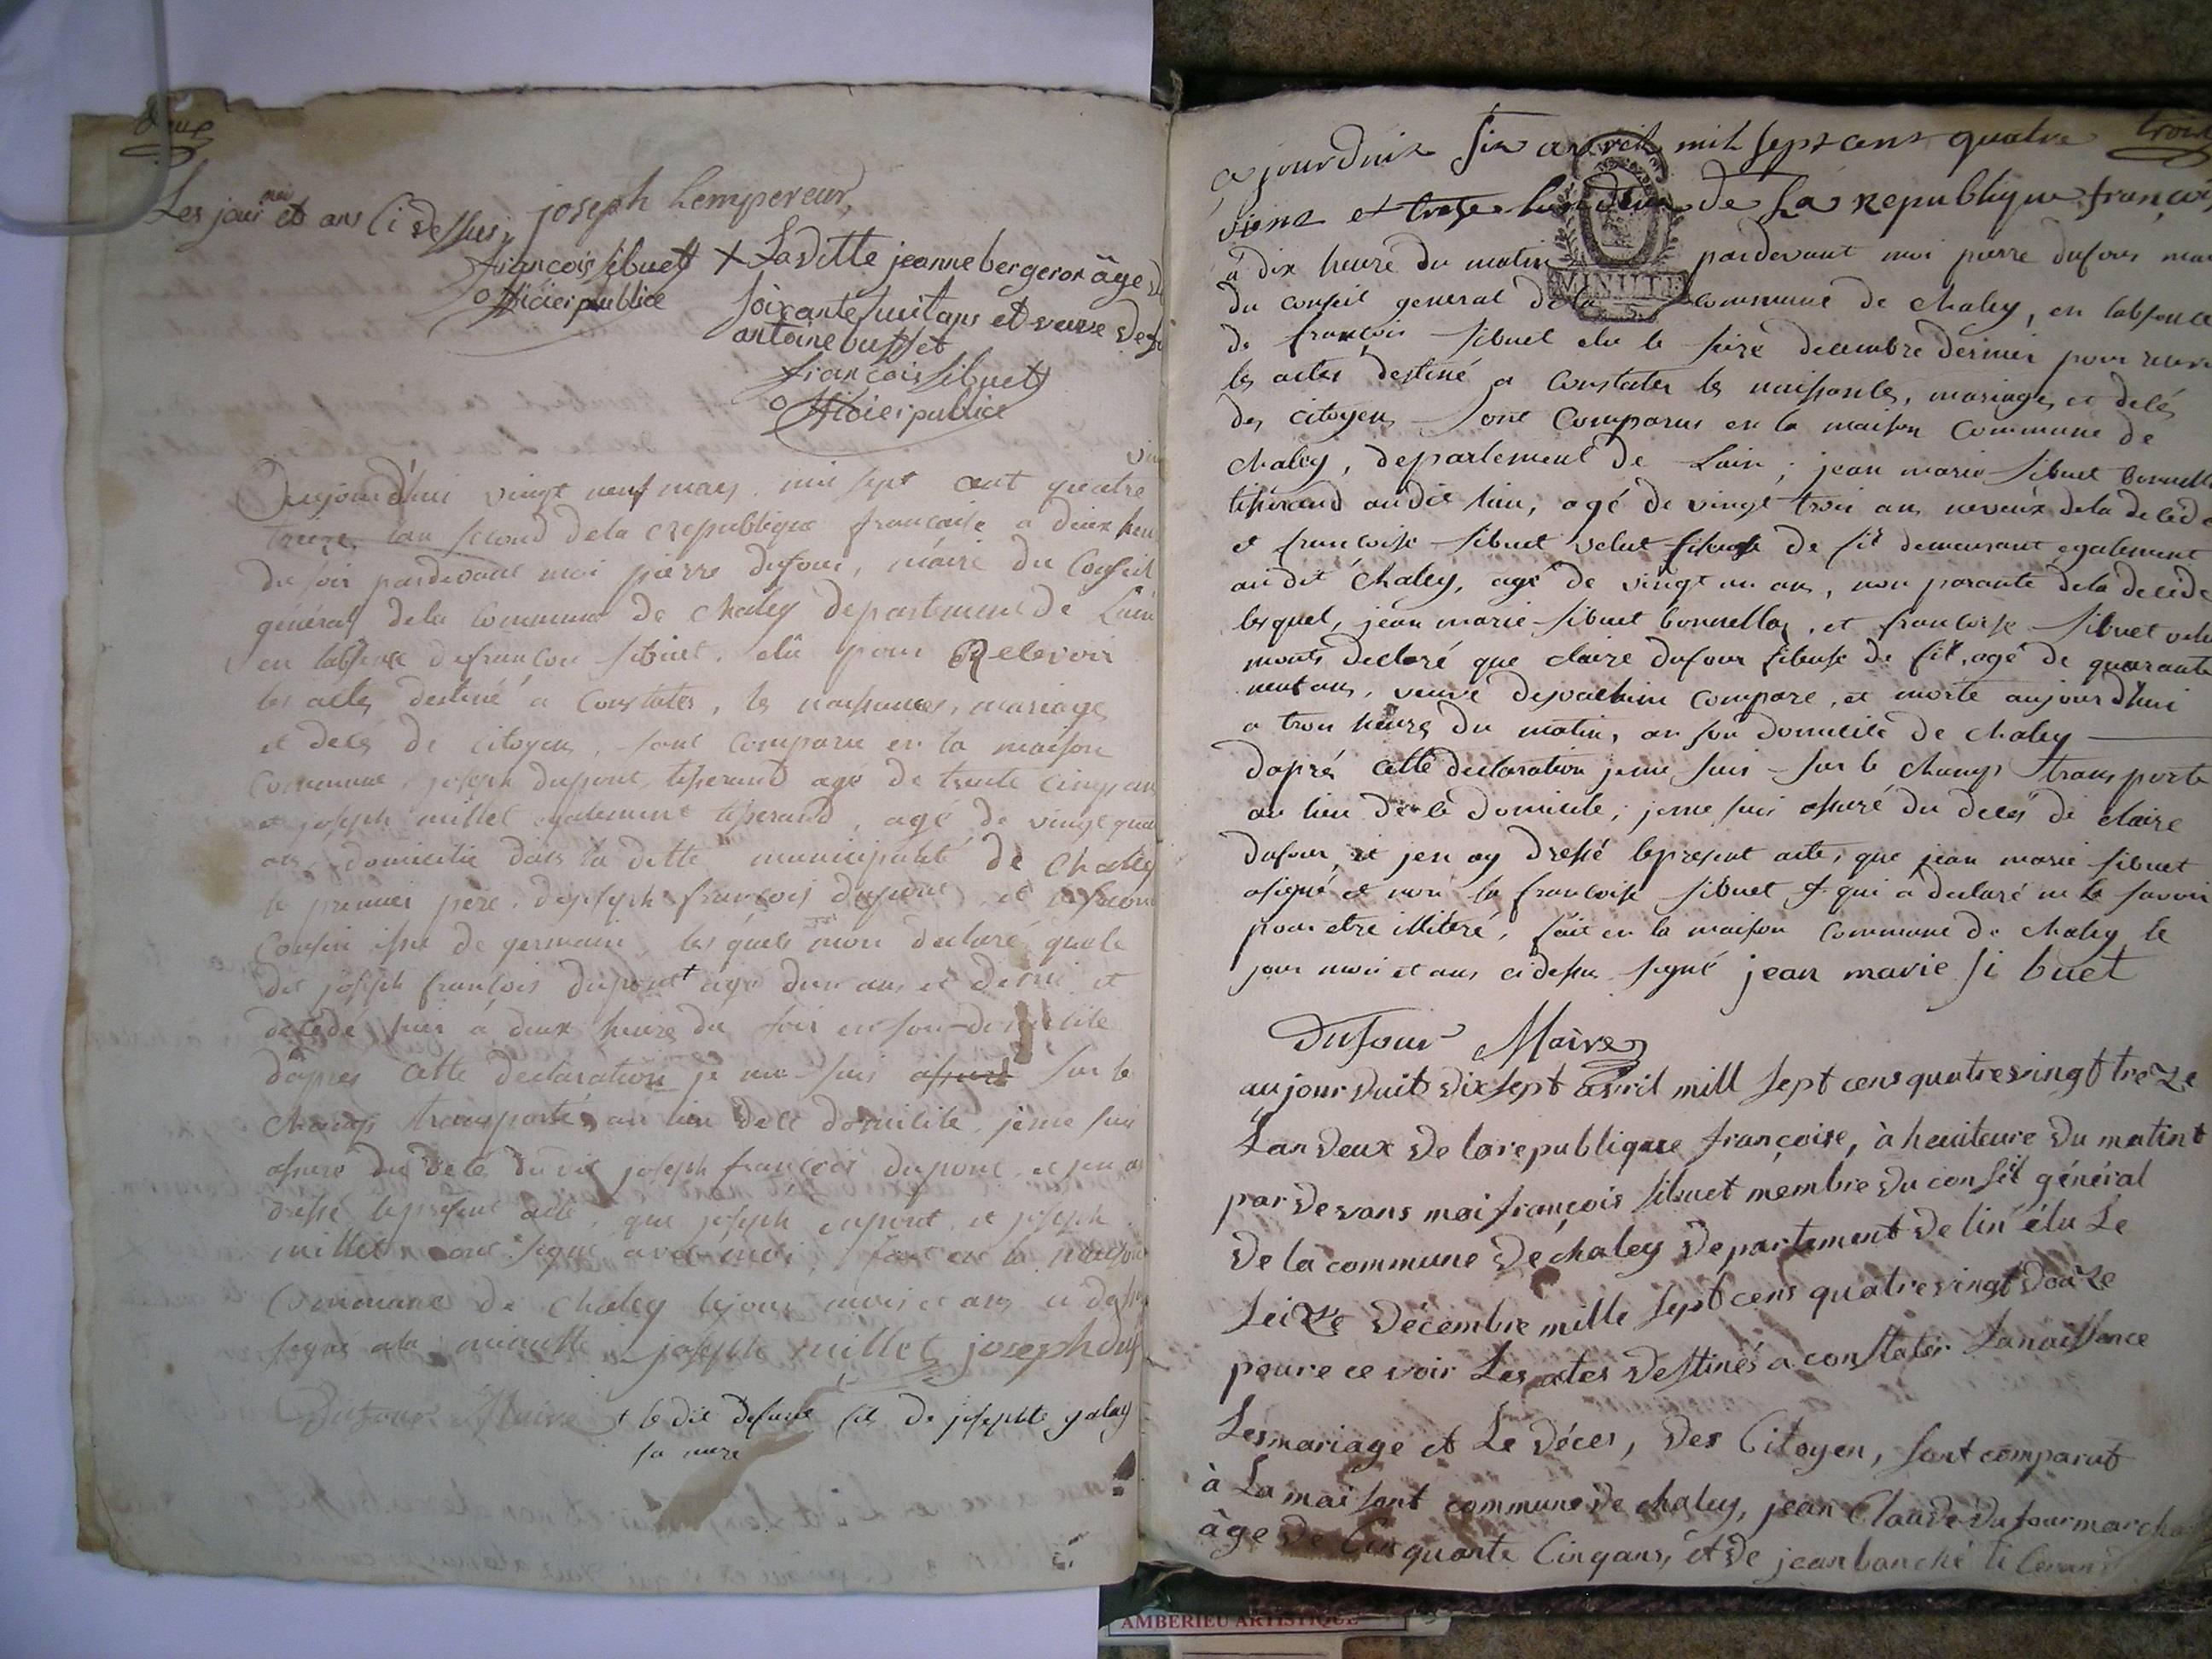 deux
Les jour moi et ans ci dessus, joseph Lempereur,
françois sibuet
officier publice
+ La ditte jeanne bergeron âge de
soixante huit ans et veuve de
antoine buffet
françois sibuet
officier publice
Aujourd'hui vingt neuf mars, mil sept cent quatre
treize, lan second de la republique francaise a deux heu
du soir pardevant moi pierre dufour, maire du Conseil
général de la Commune de chaley departement de Lain
en labsence de françois sibuet, élu pour Recevoir
les actes destiné a Constater, les naissances, mariages
et deces de citoyens, sont Comparu en la maison
Commune, joseph dupont, tisserand agé de trente cinq ans
et joseph millet egalement tisserand, agé de vingt qua
ans, domicilié dans la ditte municipalité de Chaley
le premier père, de joseph françois dupont, et le second
Cousin issu de germain, les quels mon declaré que le
dit joseph françois dupont + agé dun ans et demi et
decedé hier à deux heure du soir en son domicile
dapres cette declaration je me suis assuré sur le
champs transporté au lieu de ce domicile, je me suis
assuré du decé du dit joseph françois dupont, et jen ai
dressé le present acte, que joseph dupont, et joseph
millet ont signé avec moi, fait en la maison
Commune de chaley le jour mois et ans ci dessus
signé a la minutte joseph millet joseph dup
Dufour Maire + le dit defunt fils de josephte galay
sa mere
trois
ajourduix six avril mil sept cens quatre
vienz et treze lan deux de La republique françois
à dix heure du matin pardevant moi pierre dufour mai
MINUTE
du conseil general de la Commune de chaley, en labsence
de françois sibuet elu le seize decembre dernier pour recevoi
les actes destiné a Constater les naissances, mariages et decés
des citoyens sont Comparus en la maison Commune de
chaley, departement de Lain, jean marie sibuet bonnella
tisserand au dit lieu, agé de vingt trois ans neveux de la decede
et francoise sibuet velut fileuse de fil demeurant egalement
au dit chaley, agé de vingt un ans, non parante de la decede
lesquel, jean marie sibuet bonnellaz, et francoise sibuet velu
monts declaré que claire dufour fileuse de fil, agé de quarante
neuf ans, veuve de joachim Compare, et morte aujourdhui
a trois heures du matin, en son domicile de chaley
dapré cette declaration je me suis sur le champs transporte
au lieu de ce domicile, je me suis assuré du decés de claire
dufour, et jen ay dressé le present acte, que jean marie sibuet
a signé et non la francoise sibuet + qui a declaré ne le savoir
pour etre illitéré, fait en la maison Commune de chaley le
jour moi et ans ci dessu signé jean marie si buet
Dufour Maire
aujourduit dixsept avril mill sept cens quatrevingt treze
Lan deux de la republique françoise, à huiteure du matint
par devans moi françois sibuet mémbre du conseil général
de la commune de chaley departement de lin élu Le
seizze décembre mille sept cens quatrevingt douze
poure ce voir Les actes destinés a constater La naissance
Les mariage et Le déces, des Citoyen, sont comparut
à La maisont commune de chaley, jean Claude dufour marcha
àge de Cinquante Cinq ans, et de jean banché ticerand
AMBERIEU ARTISTIQUE